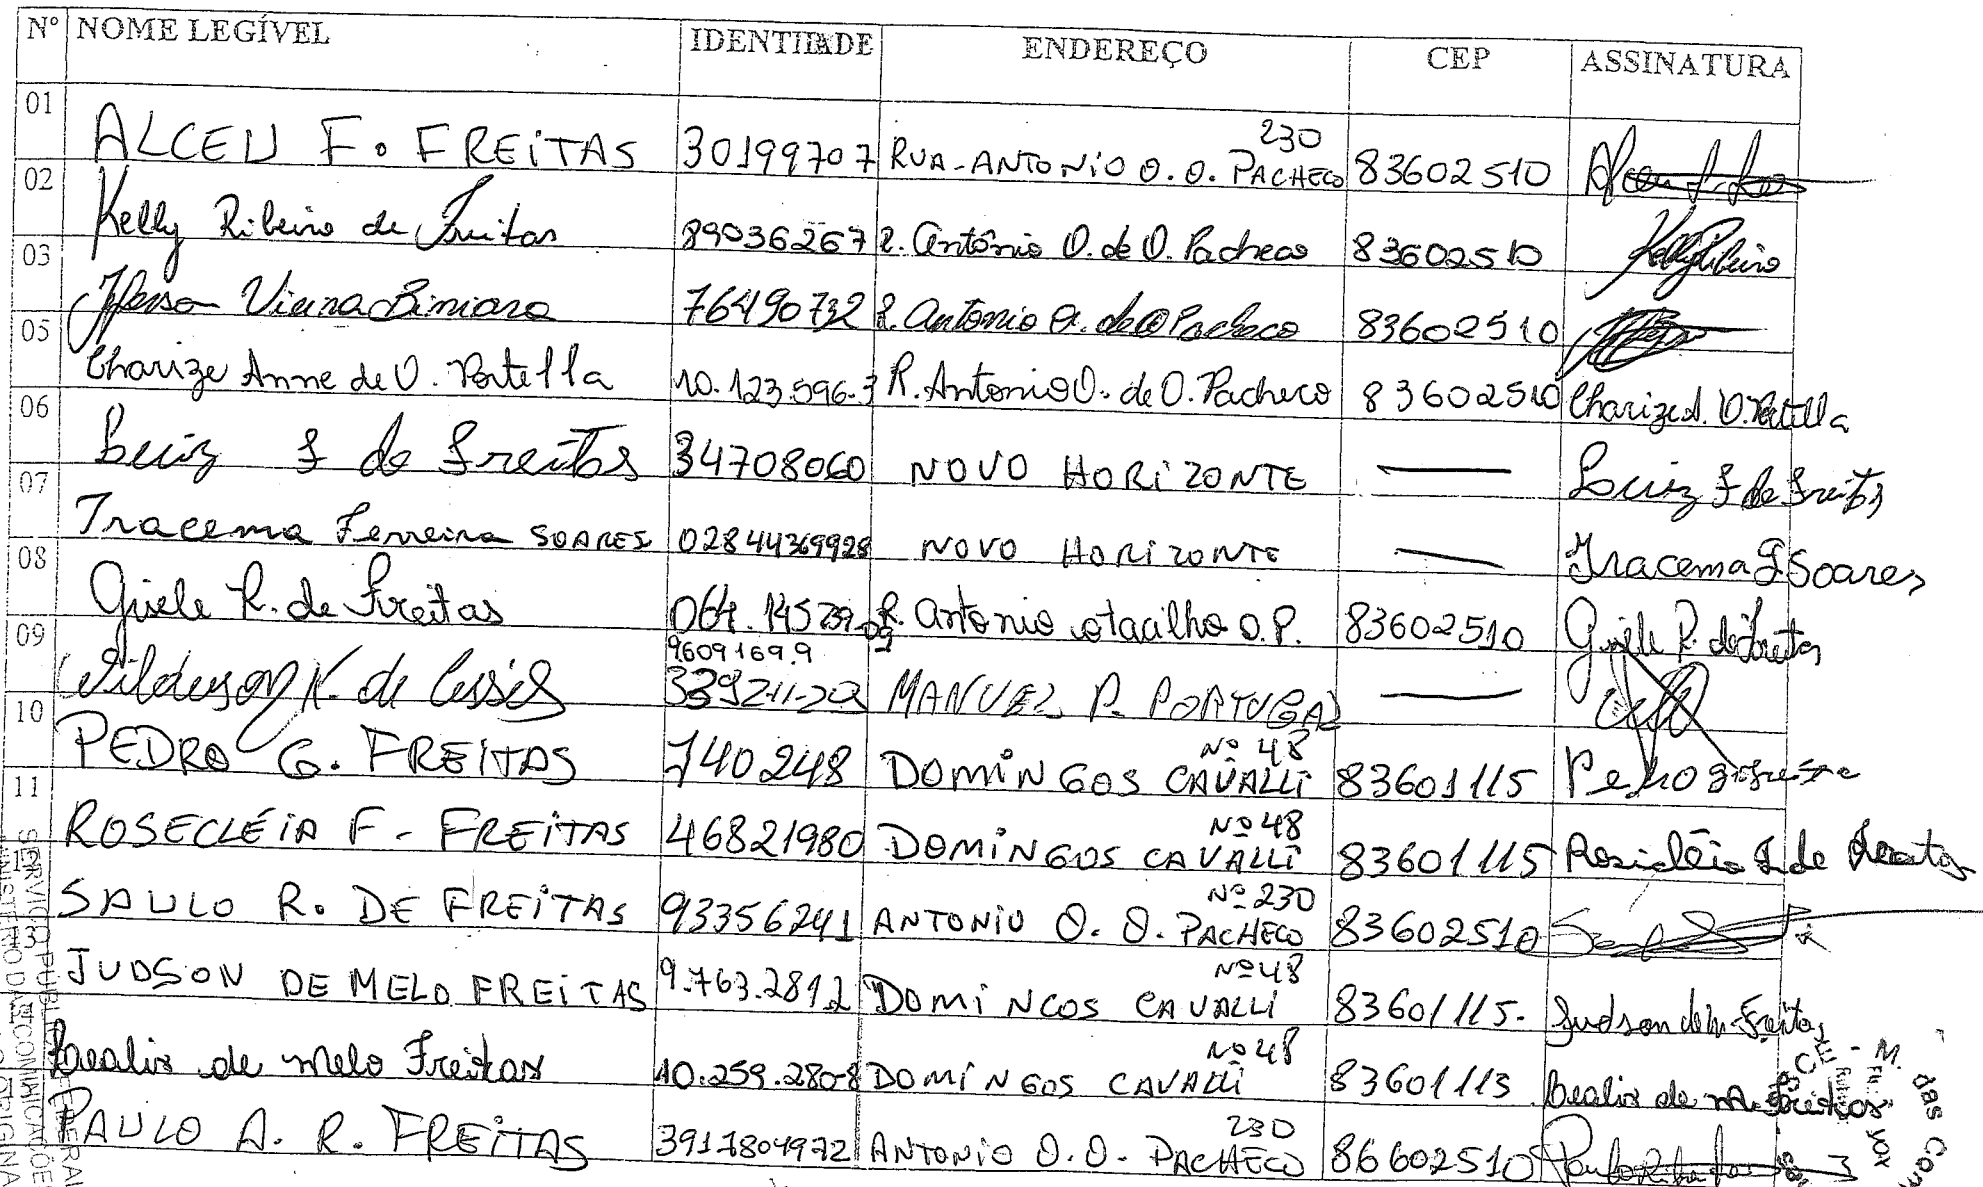 Nº NOME LEGÍVEL IDENTIDADE ENDEREÇO CEP ASSINATURA
01 ALCEU F. FREITAS 30199707 RUA-ANTONIO O. O. PACHECO 230 83602510
02 Kelly Ribeiro de Freitas 89036267 R. Antônio O. de O. Pacheco 83602510 Kelly Ribeiro
03 Vieira 76490732 R. Antonio O. de O Pacheco 83602510
05 Charize Anne de O. Portella 10.123.596-3 R. Antonio O. de O. Pacheco 83602510 Charize A. O. Portella
06 Luiz F de Freitas 34708060 NOVO HORIZONTE — Luiz F de Freitas
07 Iracema Ferreira SOARES 02844369928 NOVO HORIZONTE — Iracema F Soares
08 Gisele R. de Freitas 064.14579-09 R. Antonio otacilho O.P. 83602510 Gisele R. de Freitas
09 9609169.9
de Assis MANUEL P. PORTUGAL —
10 PEDRO G. FREITAS 740248 DOMINGOS CAVALLI Nº 48 83601115 Pedro
11 ROSECLÉIA F. FREITAS 46821980 DOMINGOS CAVALLI Nº 48 83601115 Rosicléia F de Freitas
12 SAULO R. DE FREITAS 93356241 ANTONIO O. O. PACHECO Nº 230 83602510
13 JUDSON DE MELO FREITAS 9.763.2812 DOMINCOS CAVALLI Nº 48 83601115. Judson de M. Freitas
Bealix de melo Freitas 10.259.280-8 DOMINGOS CAVALLI Nº 48 83601113 Bealix de M. Freitas
PAULO A. R. FREITAS 3917804972 ANTONIO O. O. PACHECO 230 86602510
SERVIÇO PÚBLICO FEDERAL
MINISTÉRIO DAS COMUNICAÇÕES
M. das Com